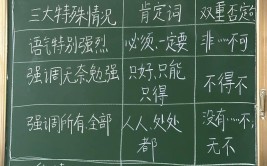 三大特殊情况 肯定词 双重否定句
语气特别强烈 必须、一定要 非……不可
强调无奈勉强 只好、只能 不得不
只得
强调所有、全部 人人、处处 没有……不,
都 无不